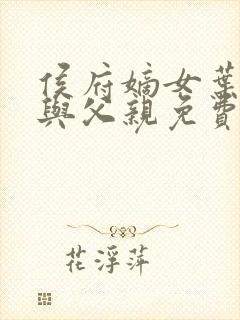 侯府嫡女葉
與父親免費
花浮萍